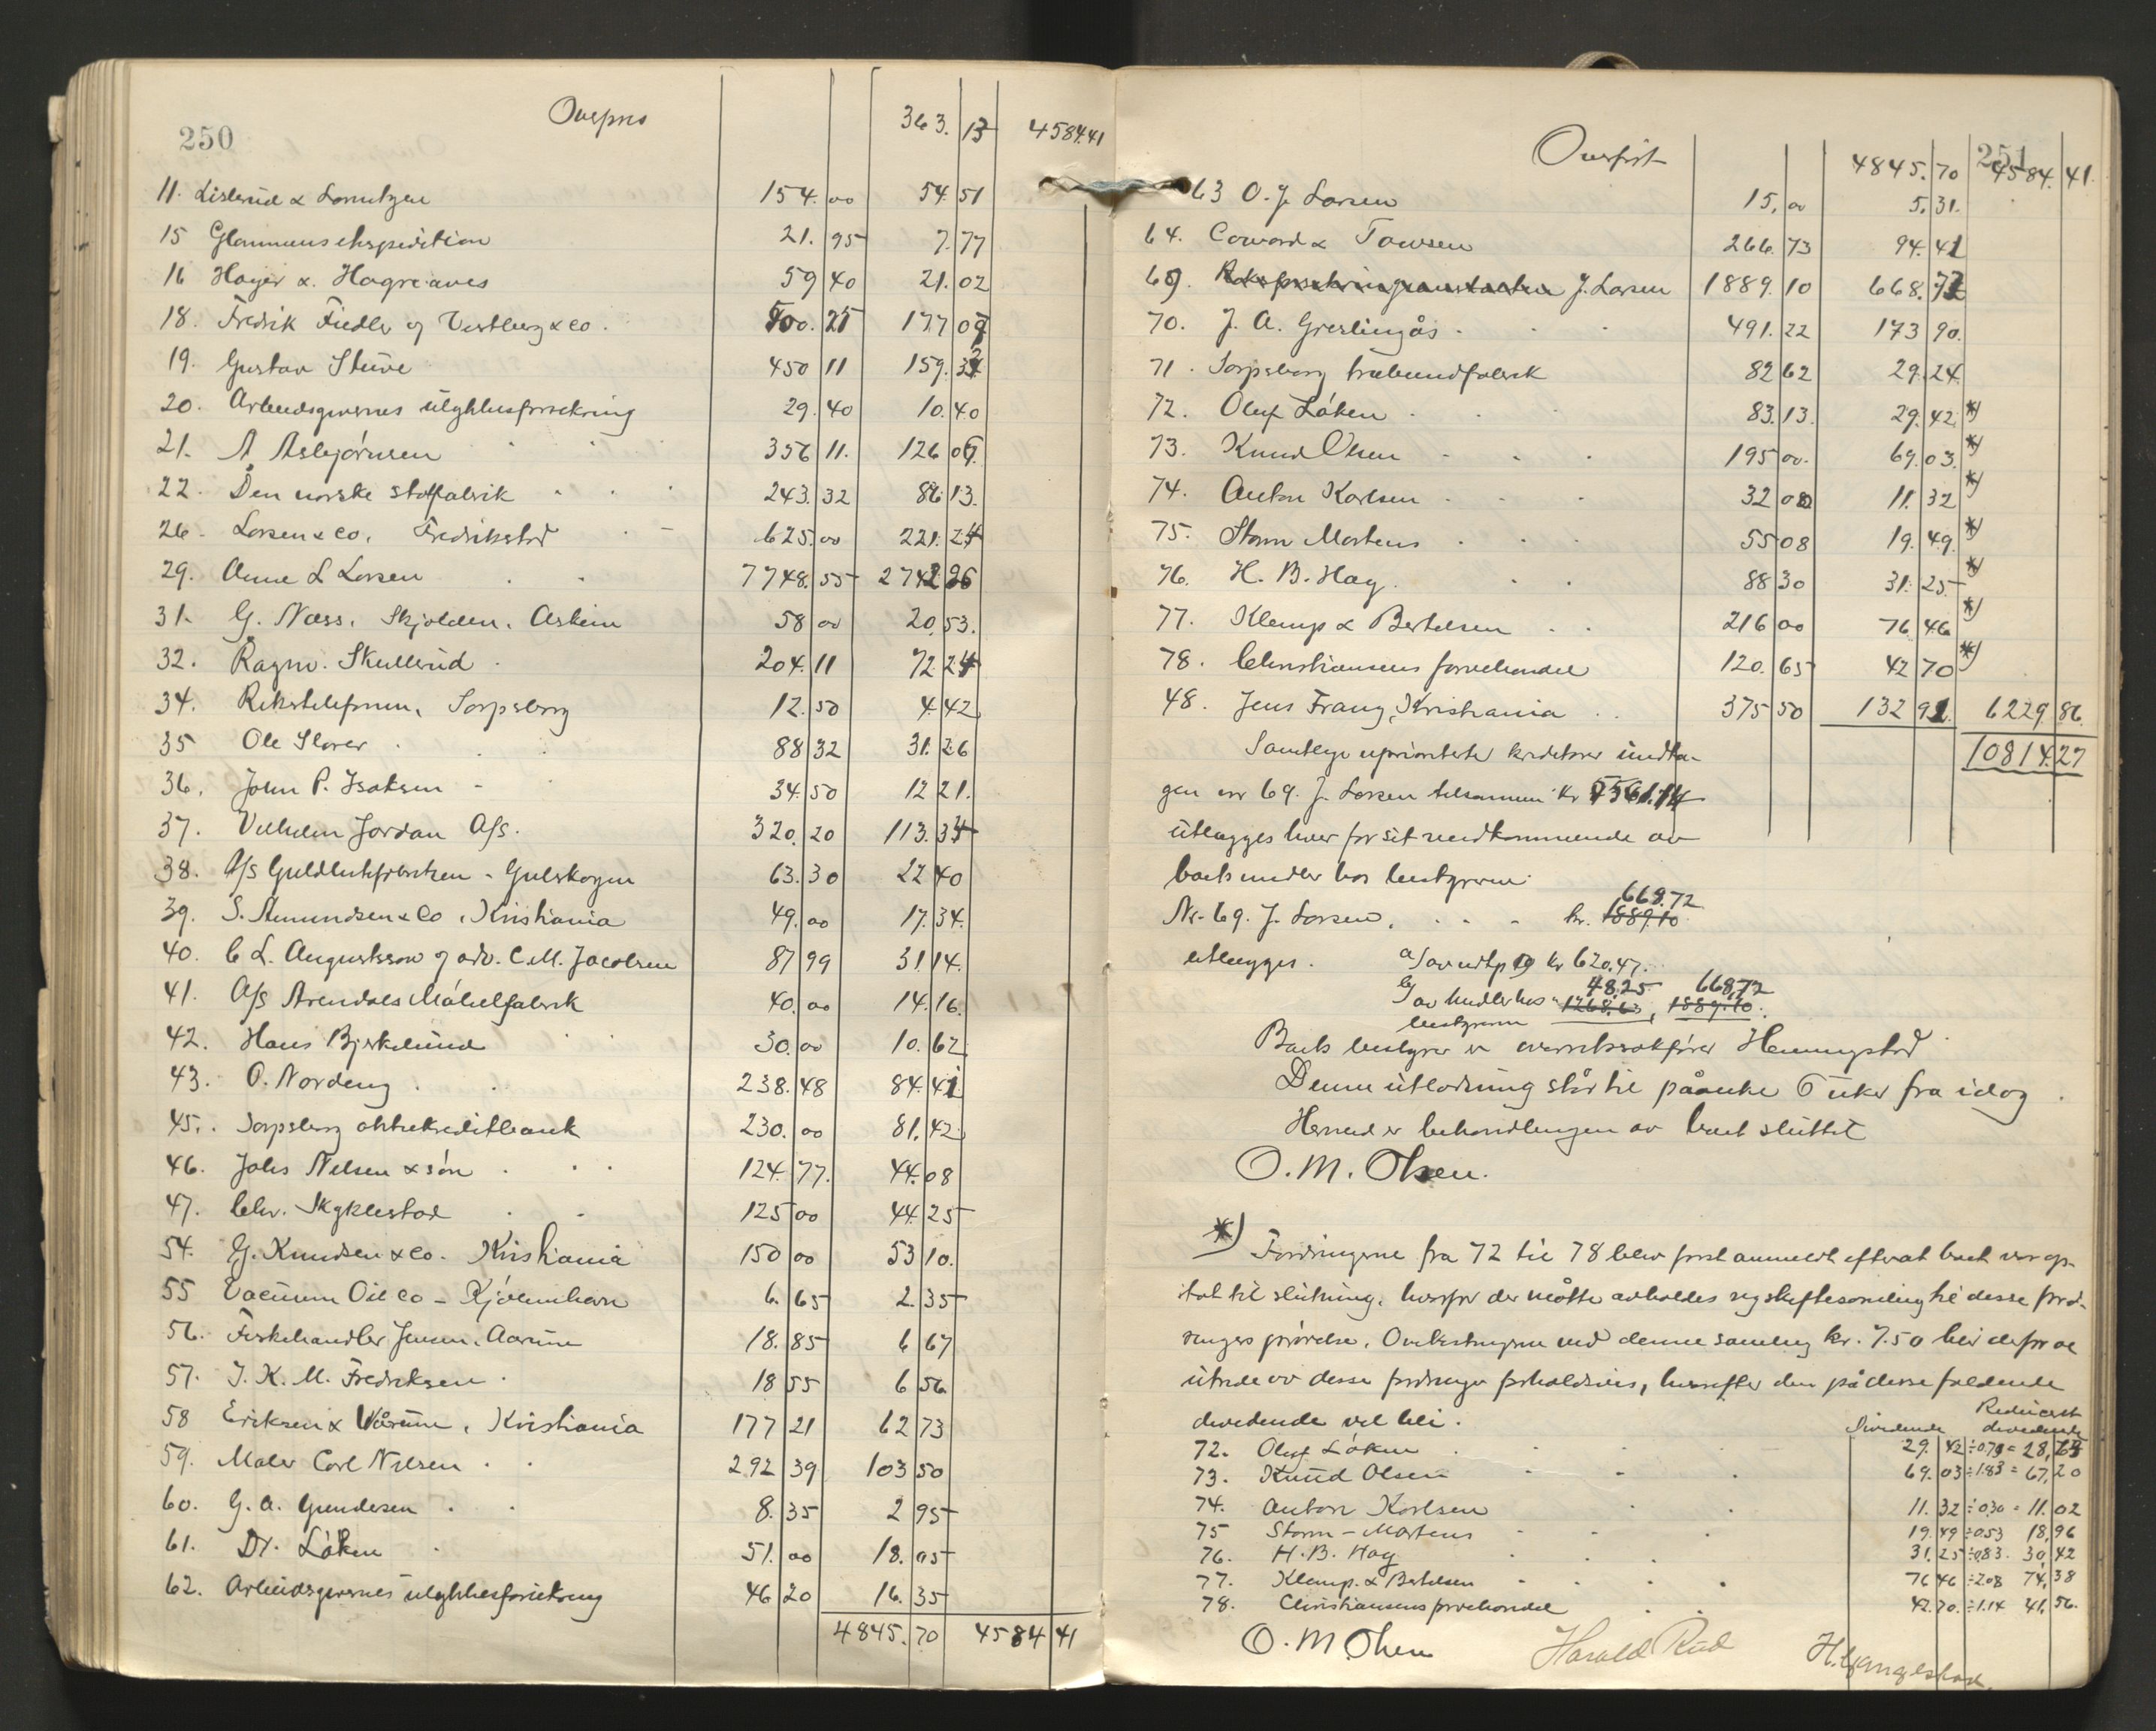 250
363. 13 4584.41
11. Listerud & Lorentzen 154. 00 54. 51
15 Glommens ekspedition 21. 95 7. 77
16 Hayer & Hagreaves 59 40 21. 02
18. Fredrik Fiedler og Vestberg & co. 500. 25 177 07
19. Gustav Stüwe 450 11 159.
20. Arbeidsgivernes ulykkesforsikring 29. 40 10. 40
21. A Asbjørnsen 356 11. 126
22. Den norske stoffabrik 243. 32 86 13.
26. Larsen & Co. Fredrikstad 625. 00 221. 24
29. Anne L Larsen 7748. 55 2742 26
31. G. Næss, Skjolden, Askim 58 00 20. 53.
32. Ragnv. Skullerud 204. 11 72 24
34. Rikstelefonen, Sarpsborg 12. 50 4. 42
35 Ole Slorer 88 32 31. 26
36. John P. Isaksen 34. 50 12 21.
37. Vilhelm Jordan A/s. 320. 20 113. 34
38. A/s Guldlistfabrikken - Gulskogen 63. 30 22 40
39. S. Amundsen & Co, Kristiania 49. 00 17. 34.
40. C L. Augustsson v/ adv. C. M. Jacobsen 87 99 31 14.
41. A/s Arendals Møbelfabrik 40. 00 14. 16.
42. Hans Bjerkelund 30. 00 10. 62
43. O. Nordeng 238. 48 84. 41
45. Sarpsborg aktiekreditbank 230. 00 81. 42
46. Johs Nilsen & søn 124. 77. 44. 08
47. Chr. Skyklestad 125 00 44. 25
54. G. Knudsen & Co. Kristiania 150 00 53 10.
55 Vacuum Oil Co - Kjøbenhavn 6. 65 2. 35
56. Fiskehandler Jensen, Aarum 18. 85 6 67
57. J. K. M. Fredriksen 18 55 6 56
58 Eriksen & Wårum, Kristiania 177 21 62 73
59. Maler Carl Nilsen 292 39 103 50
60. G. A. Gundersen 8. 35 2 95
61. Dr. Løken 51. 00 18. 05
62. Arbeidsgivernes ulykkesforsikring 46 20 16. 35
4845. 70 4584 41
251
Overført 4845. 70 4584. 41.
63 O. J. Larsen 15, 00 5. 31.
64. Coward & Towsen 266. 73 94. 41
69. J. Larsen 1889. 10 668. 72
70. J. A. Greslingås 491. 22 173 90.
71. Sarpsborg træbundfabrik 82 62 29. 24.
72. Oluf Løken 83. 13. 29. 42. *)
73. Knud Olsen 195 00. 69. 03. *)
74. Anton Karlsen 32 08 11. 32 *)
75. Storm Martens 55 08 19. 49. *)
76. H. B. Hag 88 30 31. 25 *)
77. Klemp & Bertelsen 216 00 76 46 *)
78. Christiansens farvehandel 120. 65 42 70 *)
48. Jens Franz, Kristiania 375 50 132 92. 6229 86.
10814.27
Samtlige uprioriterte kreditorer undta-
gen nr 69. J. Larsen tilsammen kr 5561.14
utlægges hver for sit vedkommende av
boets midler hos bestyreren.
668.72
Nr. 69. J. Larsen, kr. 1889.10
utlægges. a/ av utlp 19 kr 620.47.
48.25 668,72
b/ av midler hos " 1268.63, 1889.10.
bestyreren
Boets bestyrer er overretssakfører Henningstad
Denne utlodning står til påanke 6 uker fra idag.
Hermed er behandlingen av boet sluttet
O. M. Olsen.
*) Fordringerne fra 72 til 78 blev først anmeldt efterat boet var op-
tat til slutning, hvorfor der måtte avholdes ny skiftesamling til desse ford-
ringers prøvelse. Omkostningerne ved denne samling kr. 7.50 blir derfor at
utrede av desse fordringer forholdsvis, hvorefter den på disse faldende
dividende vil bli.
Dividende Reducert dividende
72. Oluf Løken 29. 42 ÷ 0.79 = 28,63
73. Knud Olsen 69. 03 ÷ 1.83 = 67,20
74. Anton Karlsen 11. 32 ÷ 0.30 = 11. 02
75 Storm - Martens 19. 49 ÷ 0.53 18,96
76. H. B. Hag 31. 25 ÷ 0.83. 30, 42
77. Klemp. & Bertelsen 76 46 ÷ 2.08 74, 38
78. Christiansens farvehandel 42. 70. ÷ 1.14 41, 56.
O. M. Olsen Harald Rud